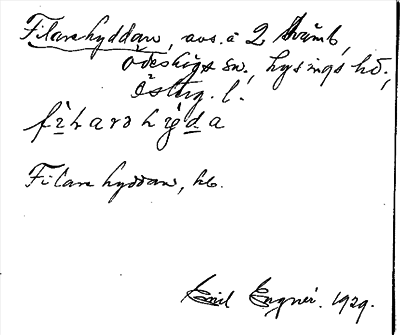 Filarehyddan, avs. å 2 kvarnb,
Ödeshögs sn., Lysings hd.,
Österg. l.
Filarehyddan, hb.
Emil Engner. 1929.